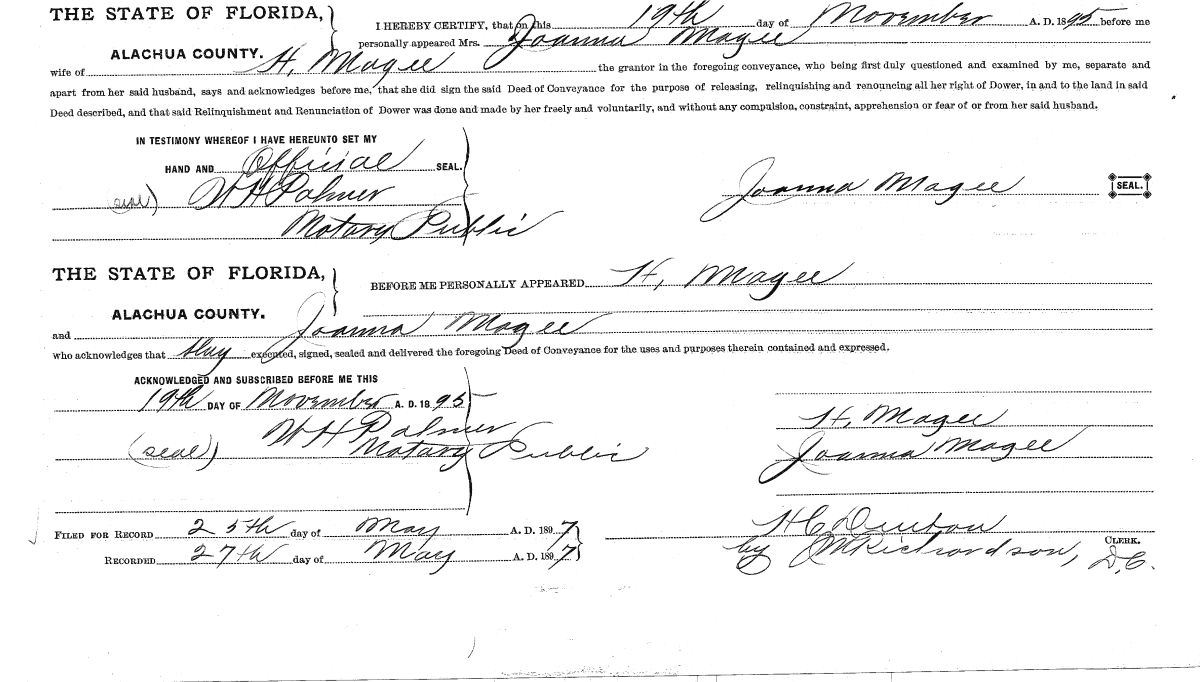 THE STATE OF FLORIDA,
ALACHUA COUNTY.
I HEREBY CERTIFY, that on this 19th day of November A. D. 1895 before me
personally appeared Mrs. Joanna Magee
wife of H, Magee the grantor in the foregoing conveyance, who being first duly questioned and examined by me, separate and
apart from her said husband, says and acknowledges before me, that she did sign the said Deed of Conveyance for the purpose of releasing, relinquishing and renouncing all her right of Dower, in and to the land in said
Deed described, and that said Relinquishment and Renunciation of Dower was done and made by her freely and voluntarily, and without any compulsion, constraint, apprehension or fear of or from her said husband.
IN TESTIMONY WHEREOF I HAVE HEREUNTO SET MY
HAND AND Official SEAL.
(seal) W H Palmer
Notary Public
Joanna Magee SEAL.
THE STATE OF FLORIDA,
ALACHUA COUNTY.
BEFORE ME PERSONALLY APPEARED H, Magee
and Joanna Magee
who acknowledges that they executed, signed, sealed and delivered the foregoing Deed of Conveyance for the uses and purposes therein contained and expressed.
ACKNOWLEDGED AND SUBSCRIBED BEFORE ME THIS
19th DAY OF November A. D. 1895
W H Palmer
(seal) Notary Public
H, Magee
Joanna Magee
FILED FOR RECORD 25th day of May A. D. 1897
RECORDED 27th day of May A. D. 1897
H C Denton
CLERK.
by J M Richardson, D.C.